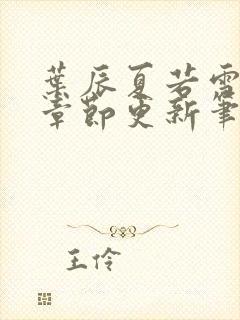 葉辰夏若雪
章節更新筆
王伶